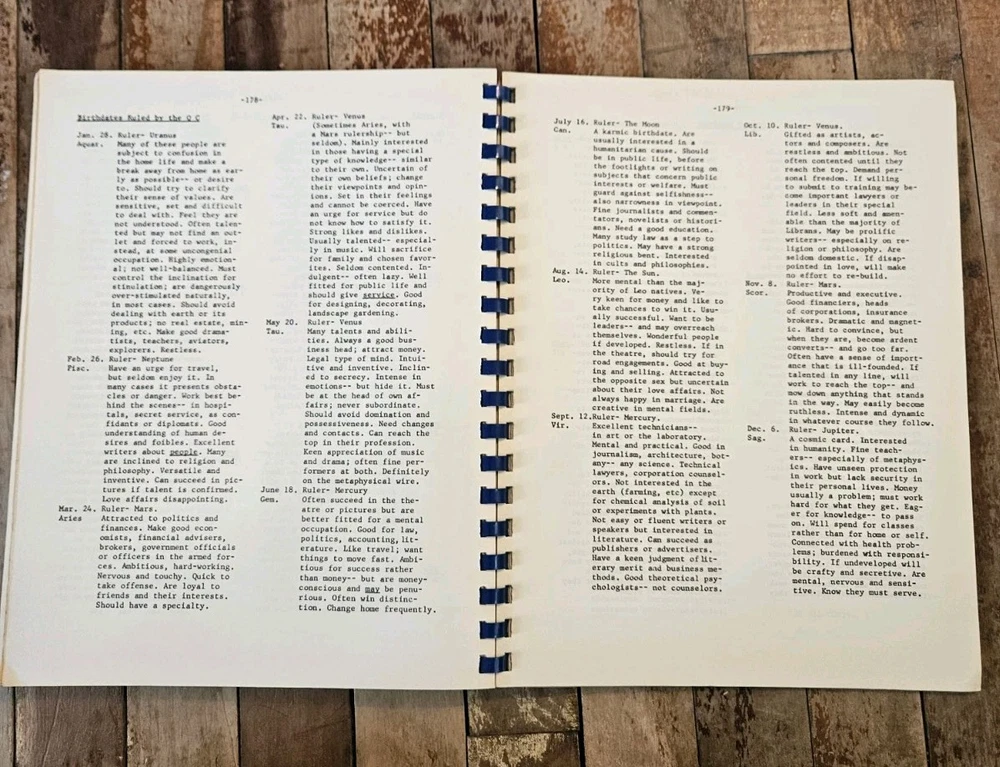 -178-
Birthdates Ruled by the Q C
Jan. 28. Ruler- Uranus
Aquar. Many of these people are
subject to confusion in
the home life and make a
break away from home as ear-
ly as possible-- or desire
to. Should try to clarify
their sense of values. Are
sensitive, set and difficult
to deal with. Feel they are
not understood. Often talen-
ted but may not find an out-
let and forced to work, in-
stead, at some uncongenial
occupation. Highly emotion-
al; not well-balanced. Must
control the inclination for
stimulation; are dangerously
over-stimulated naturally,
in most cases. Should avoid
dealing with earth or its
products; no real estate, min-
ing, etc. Make good drama-
tists, teachers, aviators,
explorers. Restless.
Feb. 26. Ruler- Neptune
Pisc. Have an urge for travel,
but seldom enjoy it. In
many cases it presents obsta-
cles or danger. Work best be-
hind the scenes-- in hospi-
tals, secret service, as con-
fidants or diplomats. Good
understanding of human de-
sires and foibles. Excellent
writers about people. Many
are inclined to religion and
philosophy. Versatile and
inventive. Can succeed in pic-
tures if talent is confirmed.
Love affairs disappointing.
Mar. 24. Ruler- Mars.
Aries Attracted to politics and
finances. Make good econ-
omists, financial advisers,
brokers, government officials
or officers in the armed for-
ces. Ambitious, hard-working.
Nervous and touchy. Quick to
take offense. Are loyal to
friends and their interests.
Should have a specialty.
Apr. 22. Ruler- Venus
Tau. (Sometimes Aries, with
a Mars rulership-- but
seldom). Mainly interested
in those having a special
type of knowledge-- similar
to their own. Uncertain of
their own beliefs; change
their viewpoints and opin-
ions. Set in their feelings
and cannot be coerced. Have
an urge for service but do
not know how to satisfy it.
Strong likes and dislikes.
Usually talented-- especial-
ly in music. Will sacrifice
for family and chosen favor-
ites. Seldom contented. In-
dulgent-- often lazy. Well
fitted for public life and
should give service. Good
for designing, decorating,
landscape gardening.
May 20. Ruler- Venus
Tau. Many talents and abili-
ties. Always a good bus-
iness head; attract money.
Legal type of mind. Intui-
tive and inventive. Inclin-
ed to secrecy. Intense in
emotions-- but hide it. Must
be at the head of own af-
fairs; never subordinate.
Should avoid domination and
possessiveness. Need changes
and contacts. Can reach the
top in their profession.
Keen appreciation of music
and drama; often fine per-
formers at both. Definitely
on the metaphysical wire.
June 18. Ruler- Mercury
Gem. Often succeed in the the-
atre or pictures but are
better fitted for a mental
occupation. Good for law,
politics, accounting, lit-
erature. Like travel; want
things to move fast. Ambi-
tious for success rather
than money-- but are money-
conscious and may be penu-
rious. Often win distinc-
tion. Change home frequently.
-179-
July 16. Ruler- The Moon
Can. A karmic birthdate. Are
usually interested in a
humanitarian cause. Should
be in public life, before
the footlights or writing on
subjects that concern public
interests or welfare. Must
guard against selfishness--
also narrowness in viewpoint.
Fine journalists and commen-
tators, novelists or histori-
ans. Need a good education.
Many study law as a step to
politics. May have a strong
religious bent. Interested
in cults and philosophies.
Aug. 14. Ruler- The Sun.
Leo. More mental than the maj-
ority of Leo natives. Ve-
ry keen for money and like to
take chances to win it. Usu-
ally successful. Want to be
leaders-- and may overreach
themselves. Wonderful people
if developed. Restless. If in
the theatre, should try for
road engagements. Good at buy-
ing and selling. Attracted to
the opposite sex but uncertain
about their love affairs. Not
always happy in marriage. Are
creative in mental fields.
Sept. 12.Ruler- Mercury.
Vir. Excellent technicians--
in art or the laboratory.
Mental and practical. Good in
journalism, architecture, bot-
any-- any science. Technical
lawyers, corporation counsel-
ors. Not interested in the
earth (farming, etc) except
for chemical analysis of soil
or experiments with plants.
Not easy or fluent writers or
speakers but interested in
literature. Can succeed as
publishers or advertisers.
Have a keen judgment of lit-
erary merit and business me-
thods. Good theoretical psy-
chologists-- not counselors.
Oct. 10. Ruler- Venus.
Lib. Gifted as artists, ac-
tors and composers. Are
restless and ambitious. Not
often contented until they
reach the top. Demand per-
sonal freedom. If willing
to submit to training may be-
come important lawyers or
leaders in their special
field. Less soft and amen-
able than the majority of
Librans. May be prolific
writers-- especially on re-
ligion or philosophy. Are
seldom domestic. If disap-
pointed in love, will make
no effort to re-build.
Nov. 8. Ruler- Mars.
Scor. Productive and executive.
Good financiers, heads
of corporations, insurance
brokers. Dramatic and magnet-
ic. Hard to convince, but
when they are, become ardent
converts-- and go too far.
Often have a sense of import-
ance that is ill-founded. If
talented in any line, will
work to reach the top-- and
mow down anything that stands
in the way. May easily become
ruthless. Intense and dynamic
in whatever course they follow.
Dec. 6. Ruler- Jupiter.
Sag. A cosmic card. Interested
in humanity. Fine teach-
ers-- especially of metaphys-
ics. Have unseen protection
in work but lack security in
their personal lives. Money
usually a problem; must work
hard for what they get. Eag-
er for knowledge-- to pass
on. Will spend for classes
rather than for home or self.
Connected with health prob-
lems; burdened with responsi-
bility. If undeveloped will
be crafty and secretive. Are
mental, nervous and sensi-
tive. Know they must serve.